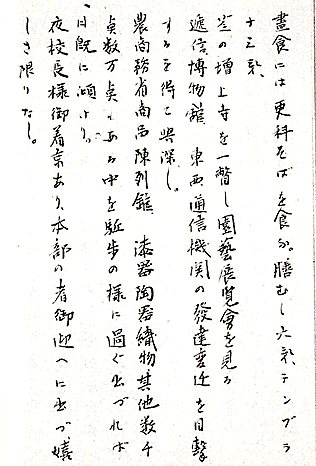 晝食には更科そばを食ふ。膳むし六、テンプラ
十三、
芝の增上寺を一瞥し園藝展覽會を見る
遞信博物館 東西通信機関の發達変迁を目撃
するを得て興深し。
農商務省商品陳列館 漆器陶器織物其他数千
点数万点もある中を駈歩の様に過ぐ出づれば
日既に傾けり。
夜校長様御着京あり、本部の者御迎へに出づ嬉
しさ限りなし。